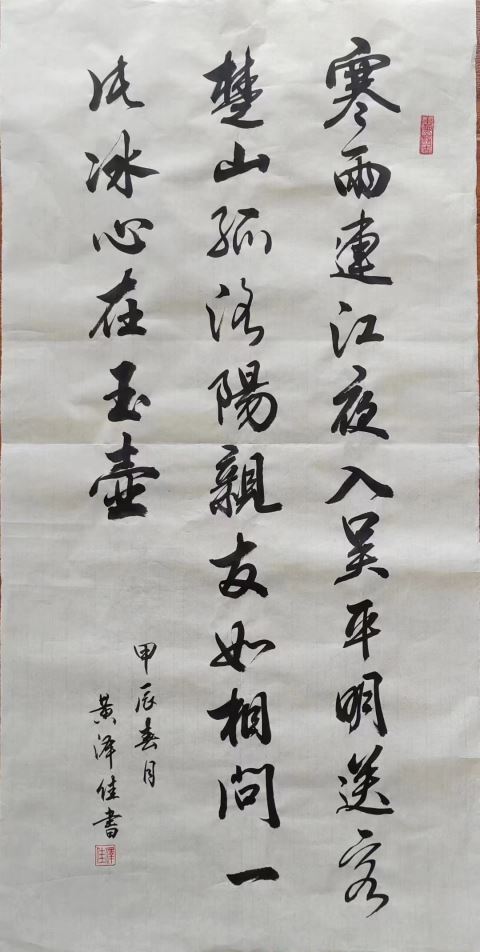 寒雨連江夜入吴平明送客
楚山孤洛陽親友如相問一
片冰心在玉壺
甲辰春月
黄泽佳書